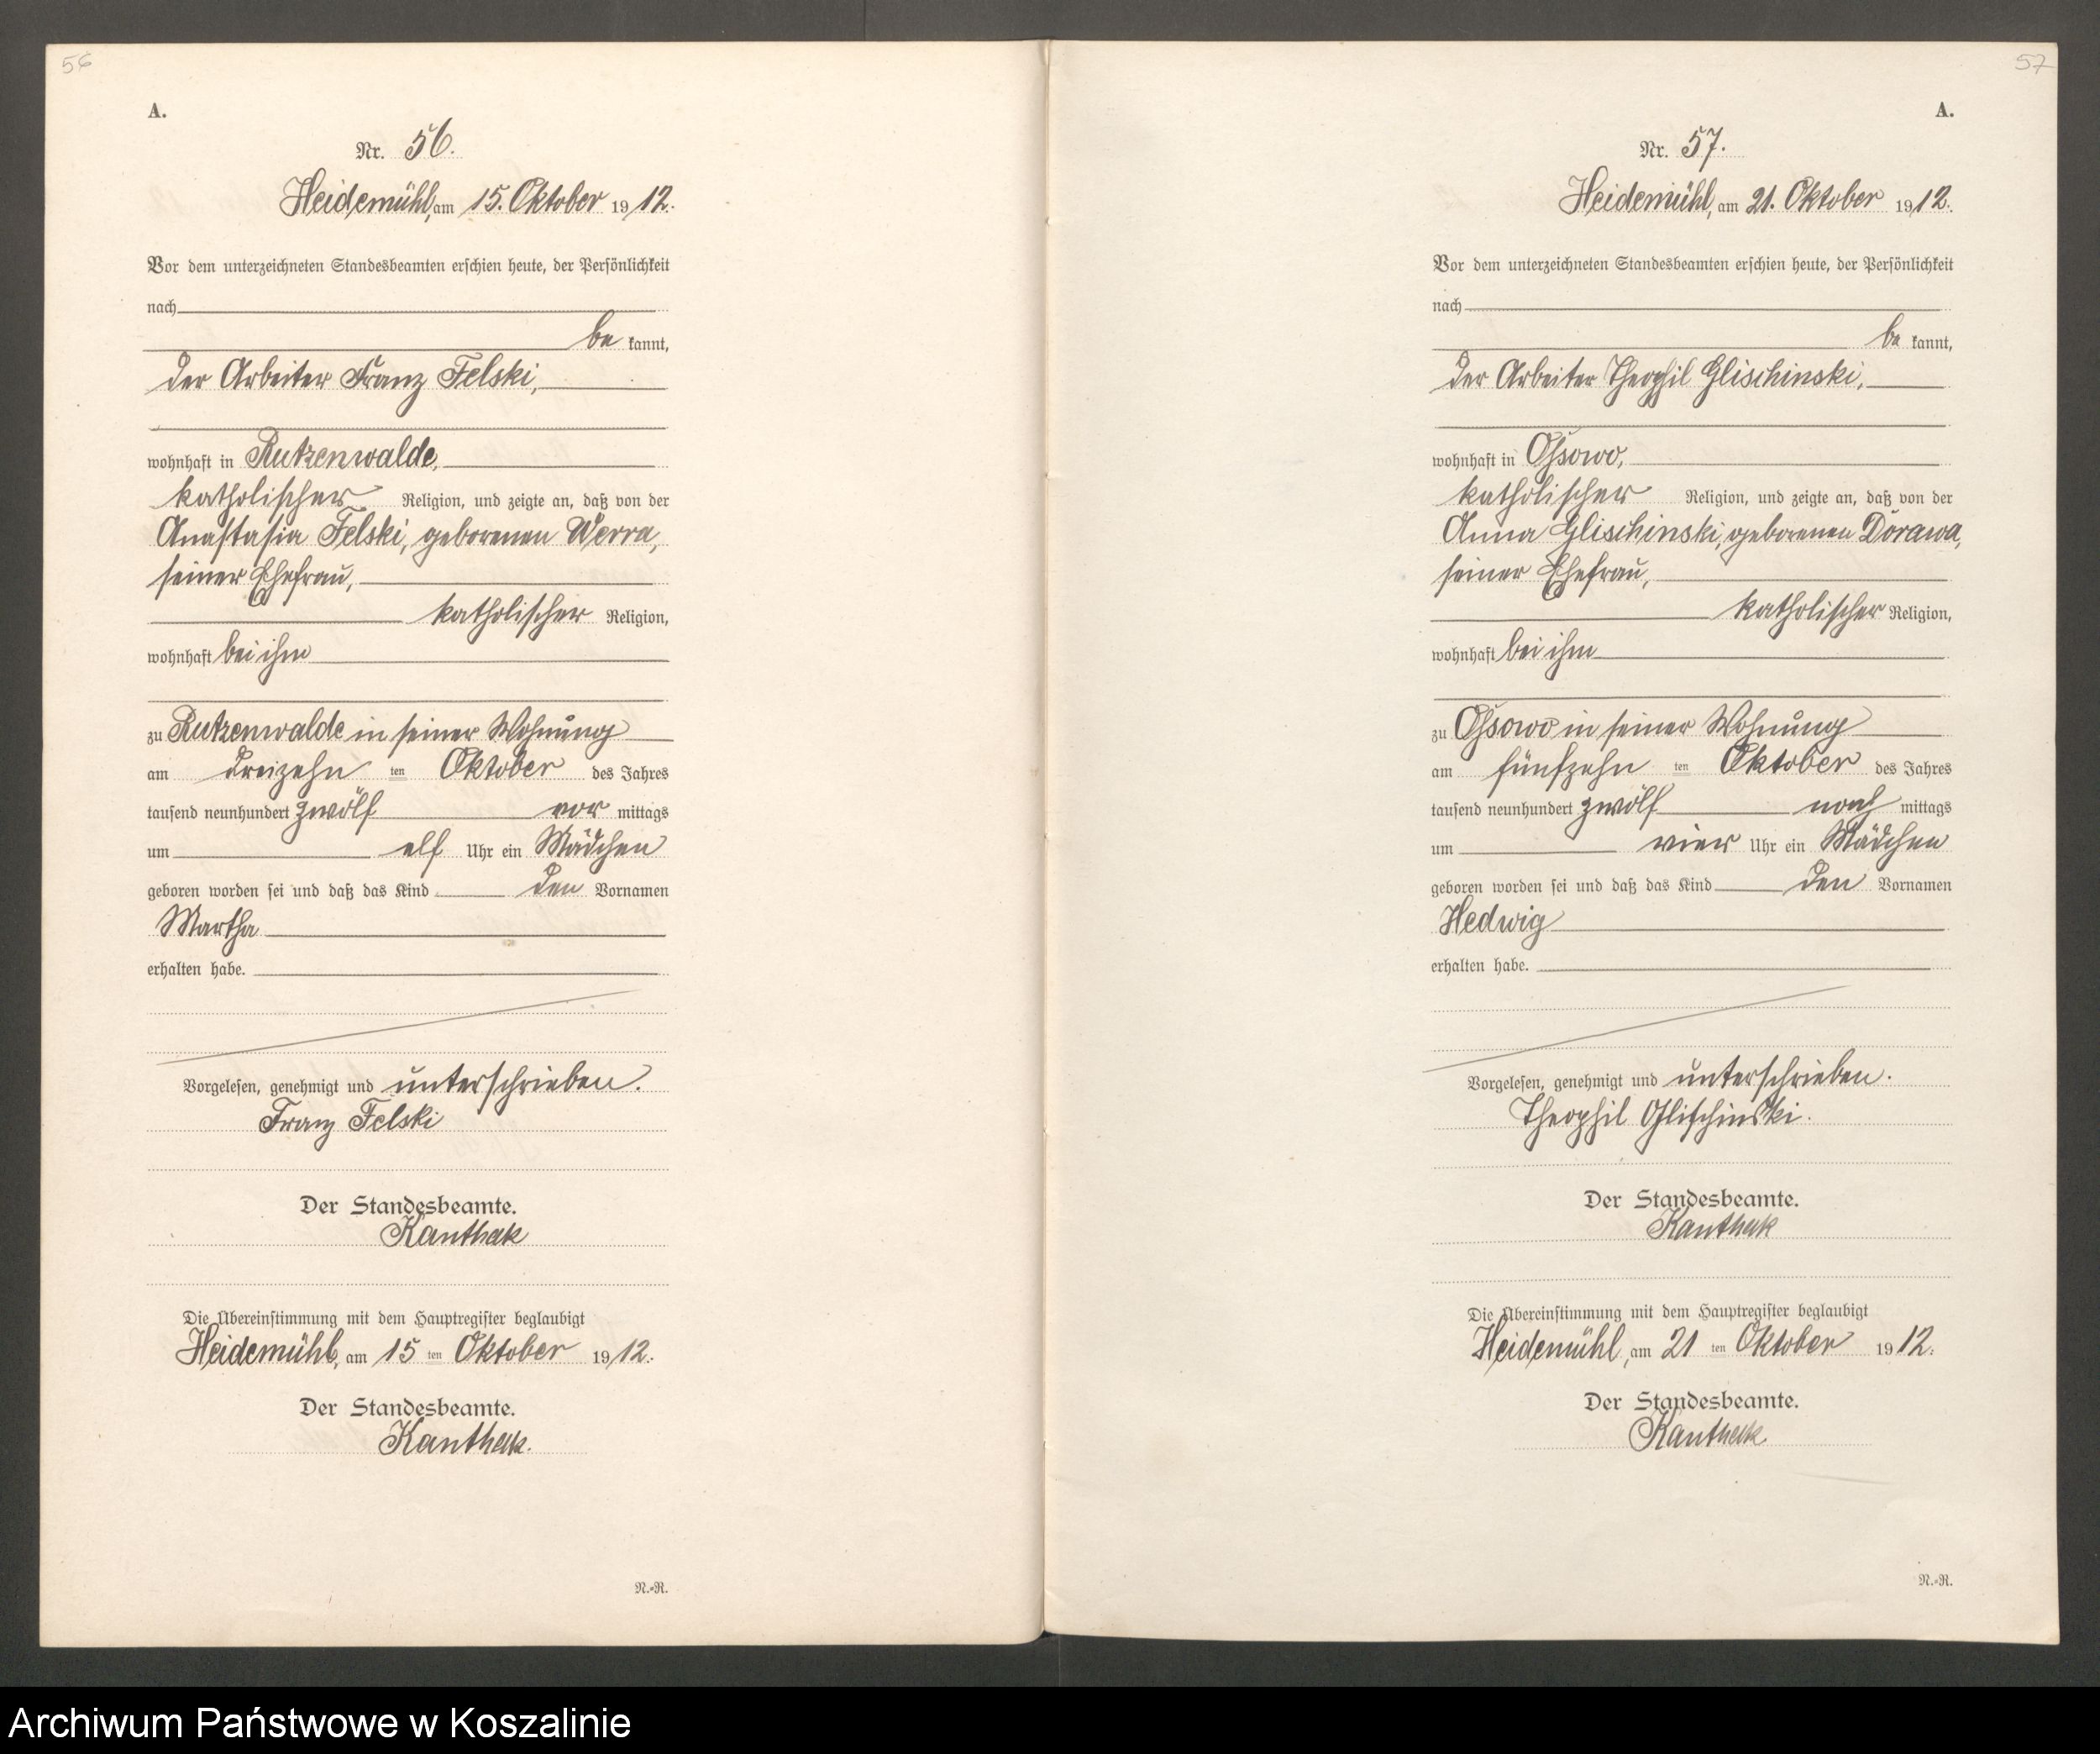 56
A.
Nr. 56.
Heidemühl, am 15. Oktober 1912.
Vor dem unterzeichneten Standesbeamten erschien heute, der Persönlichkeit
nach
be kannt,
der Arbeiter Franz Felski,
wohnhaft in Rutzenwalde,
katholischer Religion, und zeigte an, daß von der
Anastasia Felski, geborenen Werra,
seiner Ehefrau,
katholischer Religion,
wohnhaft bei ihm
zu Rutzenwalde in seiner Wohnung
am dreizehn ten Oktober des Jahres
tausend neunhundert zwölf vor mittags
um elf Uhr ein Mädchen
geboren worden sei und daß das Kind den Vornamen
Martha
erhalten habe.
Vorgelesen, genehmigt und unterschrieben.
Franz Felski
Der Standesbeamte.
Kanthak
Die Übereinstimmung mit dem Hauptregister beglaubigt
Heidemühl, am 15 ten Oktober 1912.
Der Standesbeamte.
Kanthak.
N.-R.
57
A.
Nr. 57.
Heidemühl, am 21. Oktober 1912.
Vor dem unterzeichneten Standesbeamten erschien heute, der Persönlichkeit
nach
be kannt,
der Arbeiter Theophil Glischinski,
wohnhaft in Ossowo,
katholischer Religion, und zeigte an, daß von der
Anna Glischinski, geborenen Dorawa,
seiner Ehefrau,
katholischer Religion,
wohnhaft bei ihm
zu Ossowo in seiner Wohnung
am fünfzehn ten Oktober des Jahres
tausend neunhundert zwölf nach mittags
um vier Uhr ein Mädchen
geboren worden sei und daß das Kind den Vornamen
Hedwig
erhalten habe.
Vorgelesen, genehmigt und unterschrieben.
Theophil Glischinski.
Der Standesbeamte.
Kanthak
Die Übereinstimmung mit dem Hauptregister beglaubigt
Heidemühl, am 21 ten Oktober 1912.
Der Standesbeamte.
Kanthak
N.-R.
Archiwum Państwowe w Koszalinie